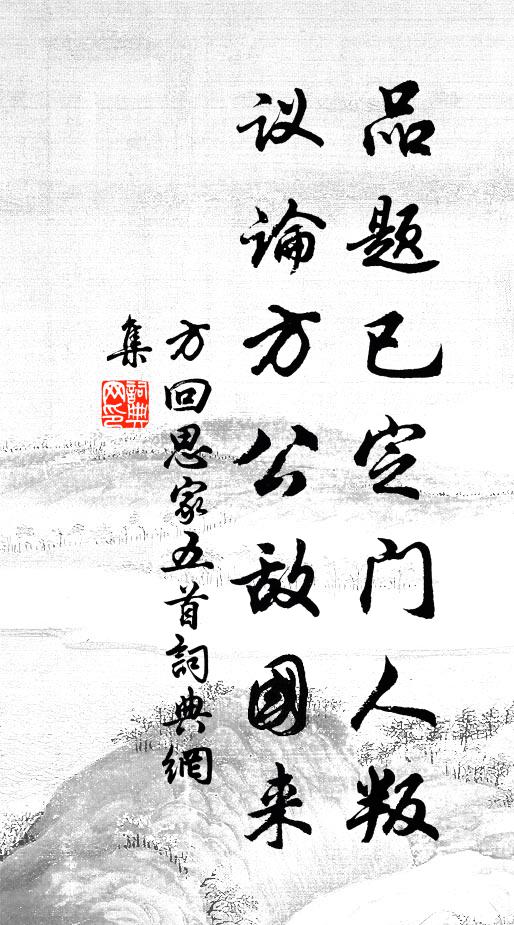 品题已定门人叛
议論方公敌國来
方回思家五首詞典網
集
詞典網印